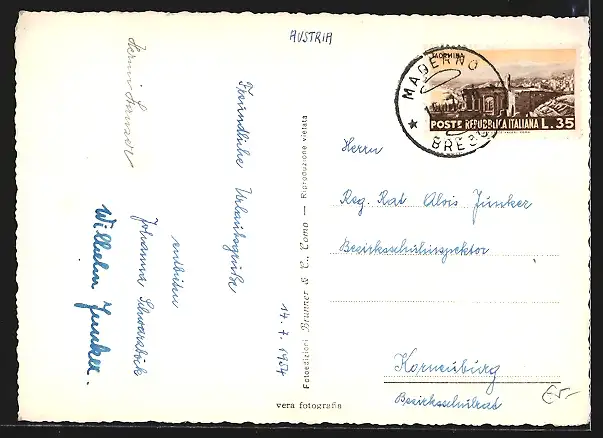 AUSTRIA
Freundliche Urlaubsgrüße
entbieten
Johanna Schwarzböck
Wilhelm Junker.
Hermi
14.7.1954
Fotoedizioni Brunner & C., Como — Riproduzione vietata
vera fotografia
TAORMINA
POSTE REPUBBLICA ITALIANA L.35
MADERNO
BRESCIA
Herrn
Reg. Rat Alois Junker
Bezirksschulinspektor
Korneuburg
Bezirksschulrat